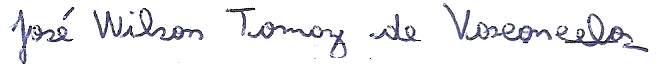 José Wilson Tomaz de Vasconcelos